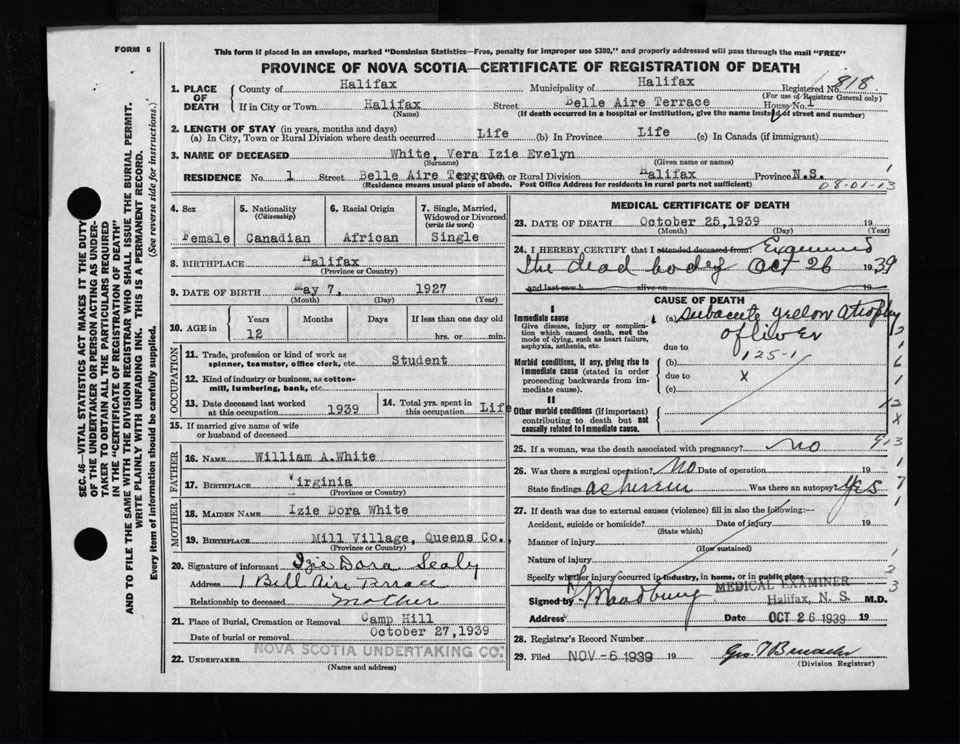 FORM 6
SEC. 46—VITAL STATISTICS ACT MAKES IT THE DUTY
OF THE UNDERTAKER OR PERSON ACTING AS UNDER-
TAKER TO OBTAIN ALL THE PARTICULARS REQUIRED
IN THE "CERTIFICATE OF REGISTRATION OF DEATH"
AND TO FILE THE SAME WITH THE DIVISION REGISTRAR WHO SHALL ISSUE THE BURIAL PERMIT.
WRITE PLAINLY WITH UNFADING INK. THIS IS A PERMANENT RECORD.
Every item of information should be carefully supplied. (See reverse side for instructions.)
This form if placed in an envelope, marked "Dominion Statistics—Free, penalty for improper use $300," and properly addressed will pass through the mail "FREE"
PROVINCE OF NOVA SCOTIA—CERTIFICATE OF REGISTRATION OF DEATH
1. PLACE OF DEATH
County of Halifax Municipality of Halifax Registered No. 818
(For use of Registrar General only)
If in City or Town Halifax Street Belle Aire Terrace House No. 1
(Name) (If death occurred in a hospital or institution, give the name instead of street and number)
2. LENGTH OF STAY (in years, months and days)
(a) In City, Town or Rural Division where death occurred Life (b) In Province Life (c) In Canada (if immigrant)
3. NAME OF DECEASED White, Vera Izie Evelyn
(Surname) (Given name or names)
RESIDENCE No. 1 Street Belle Aire Terrace or Rural Division Halifax Province N.S. 1
(Residence means usual place of abode. Post Office Address for residents in rural parts not sufficient) 08-01-13
4. Sex
Female
5. Nationality
(Citizenship)
Canadian
6. Racial Origin
African
7. Single, Married, Widowed or Divorced
(write the word)
Single
8. BIRTHPLACE Halifax
(Province or Country)
9. DATE OF BIRTH May 7, 1927
(Month) (Day) (Year)
10. AGE in
Years Months Days If less than one day old
12 hrs. or min.
OCCUPATION
11. Trade, profession or kind of work as
spinner, teamster, office clerk, etc. Student
12. Kind of industry or business, as cotton-
mill, lumbering, bank, etc.
13. Date deceased last worked
at this occupation 1939
14. Total yrs. spent in
this occupation Life
15. If married give name of wife
or husband of deceased
FATHER
16. NAME William A. White
17. BIRTHPLACE Virginia
(Province or Country)
MOTHER
18. MAIDEN NAME Izie Dora White
19. BIRTHPLACE Mill Village, Queens Co.
(Province or Country)
20. Signature of informant Izie Dora Sealy
Address 1 Bell Aire Terrace
Relationship to deceased mother
21. Place of Burial, Cremation or Removal Camp Hill
Date of burial or removal October 27, 1939
22. UNDERTAKER NOVA SCOTIA UNDERTAKING CO.
(Name and address)
MEDICAL CERTIFICATE OF DEATH
23. DATE OF DEATH October 25, 1939 19
(Month) (Day) (Year)
24. I HEREBY CERTIFY that I attended deceased from: Examined
the dead body Oct 26 1939
and last saw h alive on
CAUSE OF DEATH
I
Immediate cause
Give disease, injury or complica-
tion which caused death, not the
mode of dying, such as heart failure,
asphyxia, asthenia, etc.
(a) Subacute yellow atrophy
of liver
due to
Morbid conditions, if any, giving rise to
immediate cause (stated in order
proceeding backwards from im-
mediate cause).
(b) 125-1
due to x
(c)
II
Other morbid conditions (if important)
contributing to death but not
causally related to immediate cause.
25. If a woman, was the death associated with pregnancy? No
26. Was there a surgical operation? No Date of operation 19
State findings as herein Was there an autopsy? Yes
27. If death was due to external causes (violence) fill in also the following:—
Accident, suicide or homicide? Date of injury 19
(State which)
Manner of injury
(How sustained)
Nature of injury
Specify whether injury occurred in industry, in home, or in public place
MEDICAL EXAMINER
Signed by Woodbury Halifax, N. S. M.D.
Address Date OCT 26 1939 19
28. Registrar's Record Number
29. Filed NOV -6 1939 19
(Division Registrar)